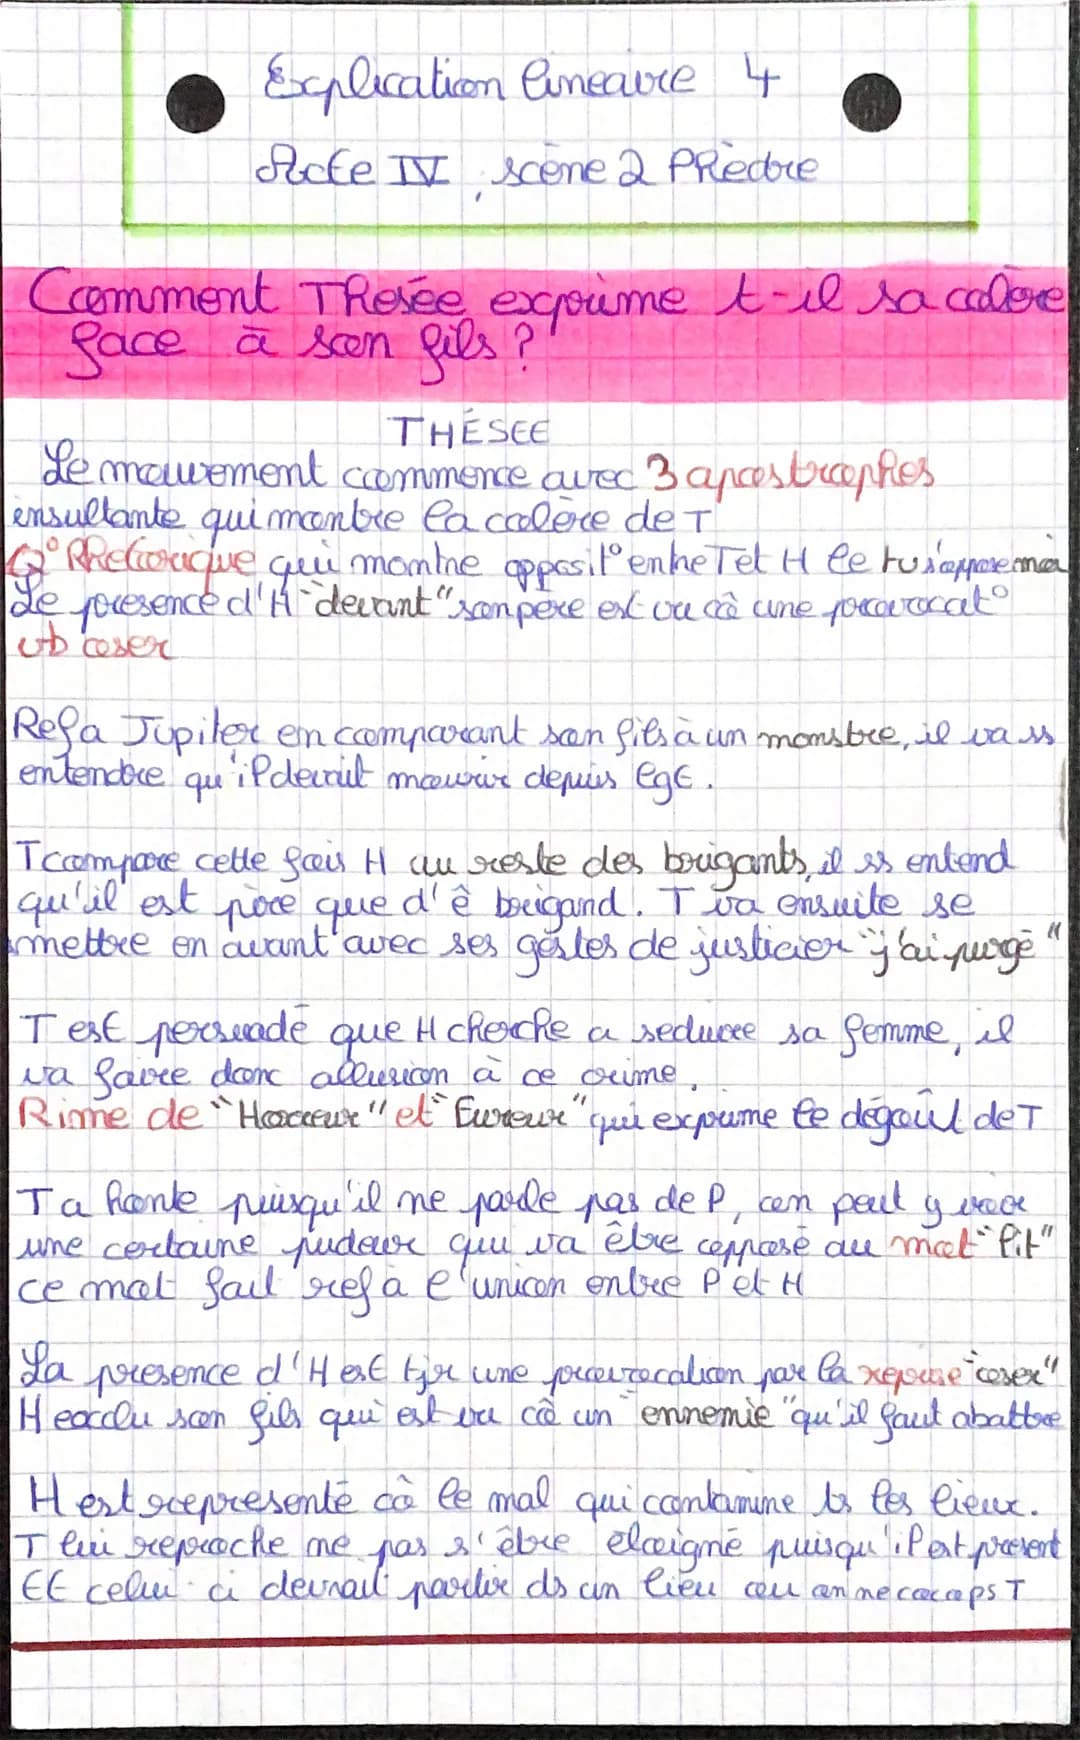 Explication lineaire 4
Acte IV, scène 2 Phèdre
Comment Thesée exprime t-il sa colère
face à son fils ?
THÉSEE
Le mouvement commence avec 3 apostrophes
insultante qui montre la colère de T
Q° Rhetorique qui montre opposit° entre T et H le tu s'oppose moi
Le presence d'H "devant" son père est vu cô une provocat°
vb oser
Ref a Jupiter en comparant son fils à un monstre, il va ss
entendre qu'il devrait mourir depuis lgt.
T compare cette fois H au reste des brigants, il ss entend
qu'il est pire que d'ê brigand. T va ensuite se
mettre en avant avec ses gestes de justicier "j'ai purgé"
T est persuadé que H cherche a seduire sa femme, il
va faire donc allusion à ce crime.
Rime de "Horreur" et "Fureur" qui exprime le dégoût de T
T a honte puisqu'il ne parle pas de P, on peut y voir
une certaine pudeur qui va être opposé au mot "lit"
ce mot fait ref à l'union entre P et H
La presence d'H est tjr une provocation par la reprise "oser"
H exclu son fils qui est vu cô un "ennemie" qu'il faut abattre
H est representé cô le mal qui contamine ts les lieux.
T lui reproche ne pas s'être éloigné puisqu'il est present
Et celui-ci devrait partir ds un lieu ou on ne T